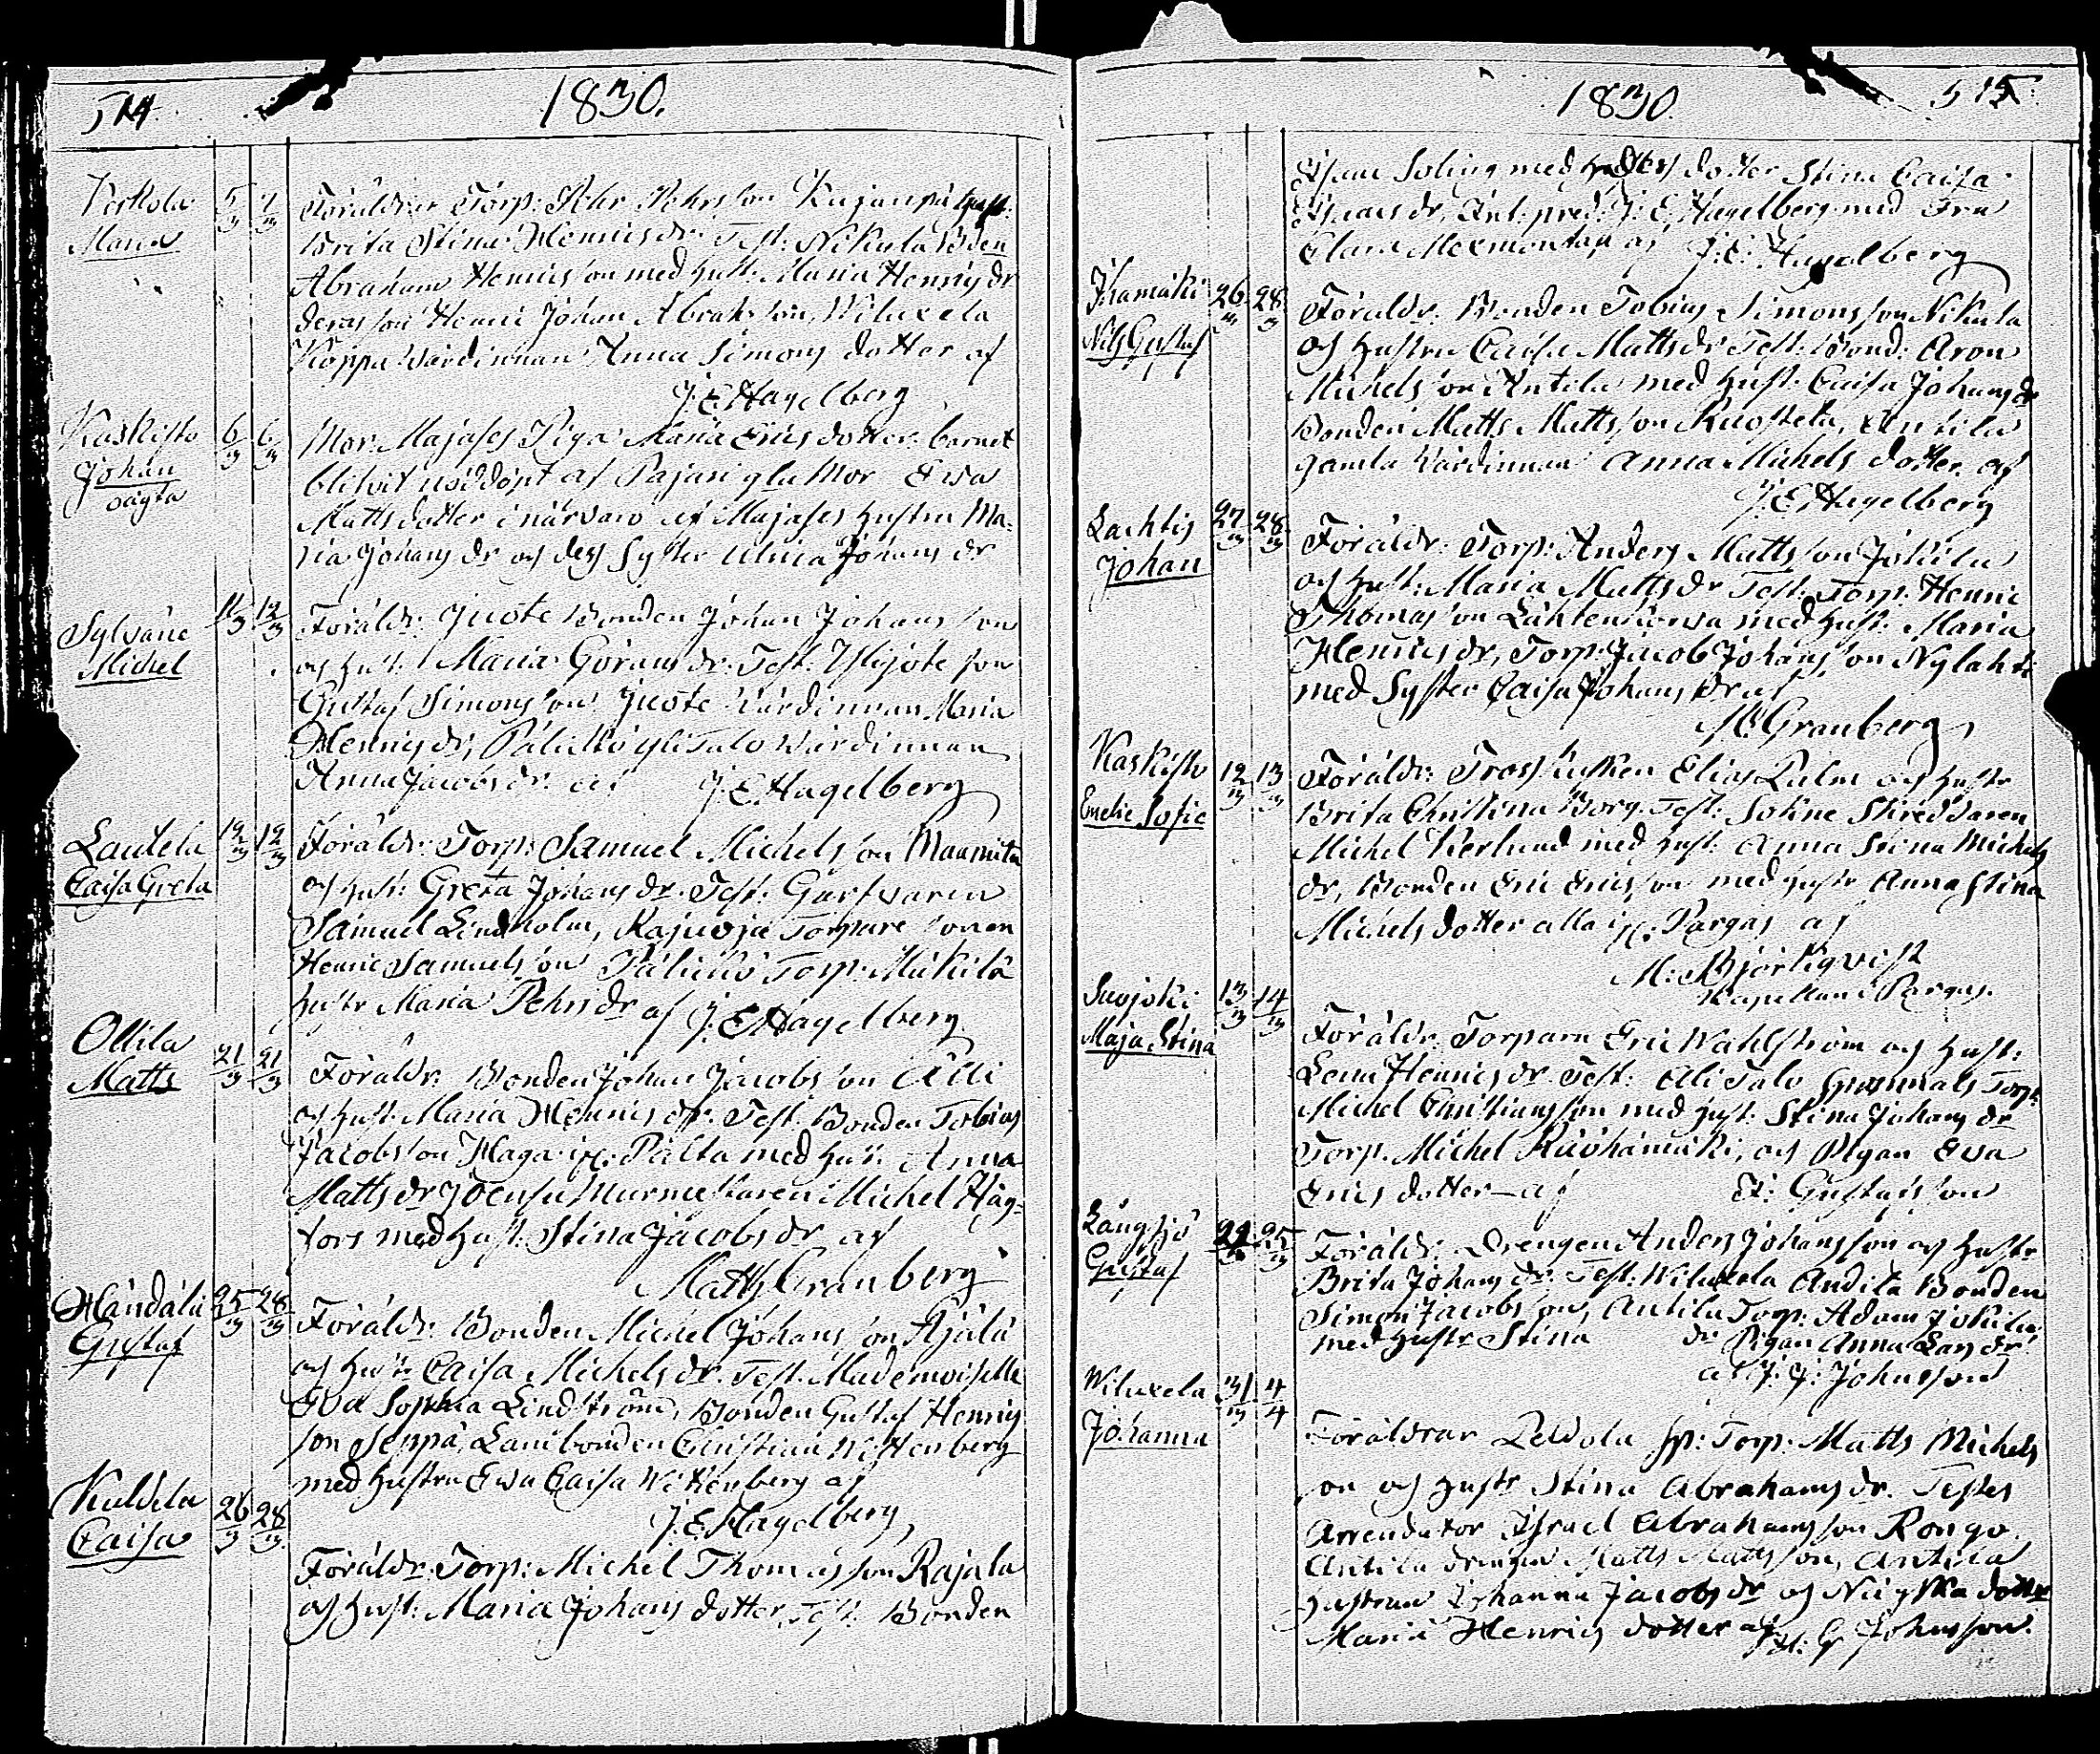 514.
1830.
Verkola 5/3 7/3 Föräldrar Torp: Pehr Pehrsson Kujanpä hust:
Maria Brita Stina Henricsdr. Test: Nikula Bden
Abraham Henricsson med hust: Maria Henricsdr
deras son Henric Johan Abrahsson, Wiluxela
Koppa Wärdinnan Anna Simons dotter af
J. E. Hagelberg
Kaskisto 6/3 6/3 Mor: Majases Piga Maria Ericsdotter barnet
Johan blifvit nöddöpt af Pajari gla Mor Ewa
oägta Mattsdotter i närvaro af Majases hustru Ma-
ria Johansdr och dess Syster Ulrica Johansdr
Sylväne 11/3 12/3 Föräldr: Juote Bonden Johan Johansson
Michel och hust: Maria Göransdr. Test: Ylijote son
Gustaf Simonsson Juote Wärdinnan Maria
Henricsdr, Palikkö ylitalo Wärdinnan
Anna Jacobsdr. af J. E. Hagelberg
Lautela 12/3 12/3 Föräldr: Torp: Samuel Michelsson
Caisa Greta och hust: Greta Johansdr. Test: Garfvaren
Samuel Lindholm, Kajuoja Torpare sonen
Henric Samuelsson Palikkö Torp: Mäkilä
hustr Maria Pehrsdr af J. E. Hagelberg
Ollila 21/3 21/3 Föräldr: Bonden Johan Jacobsson Alli
Matts och hust: Maria Henricsdr. Test: Bonden Tobias
Jacobsson Haga i Palta med hust: Anna
Mattsdr Murmestaren Michel Häg-
fors med hust: Stina Jacobsdr af
Matths Granberg
Händälä 25/3 28/3 Föräldr: Bonden Michel Johansson Äjälä
Gustaf och hust: Caisa Michelsdr. Test: Mademoiselle
Eva Sophia Lindström, Bonden Gustaf Henrics
son Seppä, Lanibonden Christian Wittenberg
med hustru Ewa Caisa Wittenberg af
J. E. Hagelberg
Kuldela 26/3 28/3 Föräldr: Torp: Michel Thomasson Rajala
Caisa och hust: Maria Johans dotter, Test: Bonden
1830.
515
Isaac Soling med dess dotter Stina Caisa
Isaacsdr, Ant: pred: J. E. Hagelberg med Fru
Clara Mexmontan af J: E: Hagelberg
Jöramäki 26/3 28/3 Föräldr: Bonden Tobias Simonsson Nikula
Nils Gustaf och hustru Caisa Mattsdr Test: Bond: Aron
Michelsson Antila med hust: Caisa Johansdr
Bonden Matts Mattsson Ruostela, Antila
gamla Wärdinnan Anna Michels dotter af
J. E. Hagelberg
Lachtis 27/3 28/3 Föräldr: Torp: Anders Mattsson Jokila
Johan och hust: Maria Mattsdr Test: Torp: Henric
Thomasson Lähtenkorva med hust: Maria
Henricsdr, Torp: Jacob Johansson Nylahti
med Syster Caisa Johans dr af
M: Granberg
Kaskisto 12/3 13/3 Föräldr: Tross kusken Elias Palm och hustr
Emelie Sofie Brita Christina Borg. Test: Sokne Skreddaren
Michel Kerlund med hust: Anna Stina Michels
dr, Bonden Eric Ericsson med hustr Anna Stina
Michels dotter alla i Pargas af
M: Björkqvist
Kapellan i Pargas.
Suojoki 13/3 14/3 Föräldr: Torparn Eric Wahlström och hust:
Maja Stina Lena Henricsdr Test: Alli Talo Torp:
Michel Christiansson med hust: Stina Johansdr
Torp. Michel och Pigan Ewa
Erics dotter af Gustafsson
Långsjö 24/3 25/3 Föräldr: Drengen Anders Johansson och hustr
Gustaf Brita Johansdr. Test: Wiluxela Andila Bonden
Simon Jacobsson, Antila Torp: Adam Jokila
med hustr Stina dr Pigan Anna Larsdr
af J. G. Johnsson
Wiluxela 31/3 4/4 Föräldrar Torp: Matts Michels
Johanna son och hustr Stina Abrahamsdr. Testes
Arrendator Israel Abrahamsson Rongo.
Antila drengen Matts Mattsson, Antila
hustrun Johanna Jacobsdr och dotter
Maria Henrics dotter af J. G. Johnsson